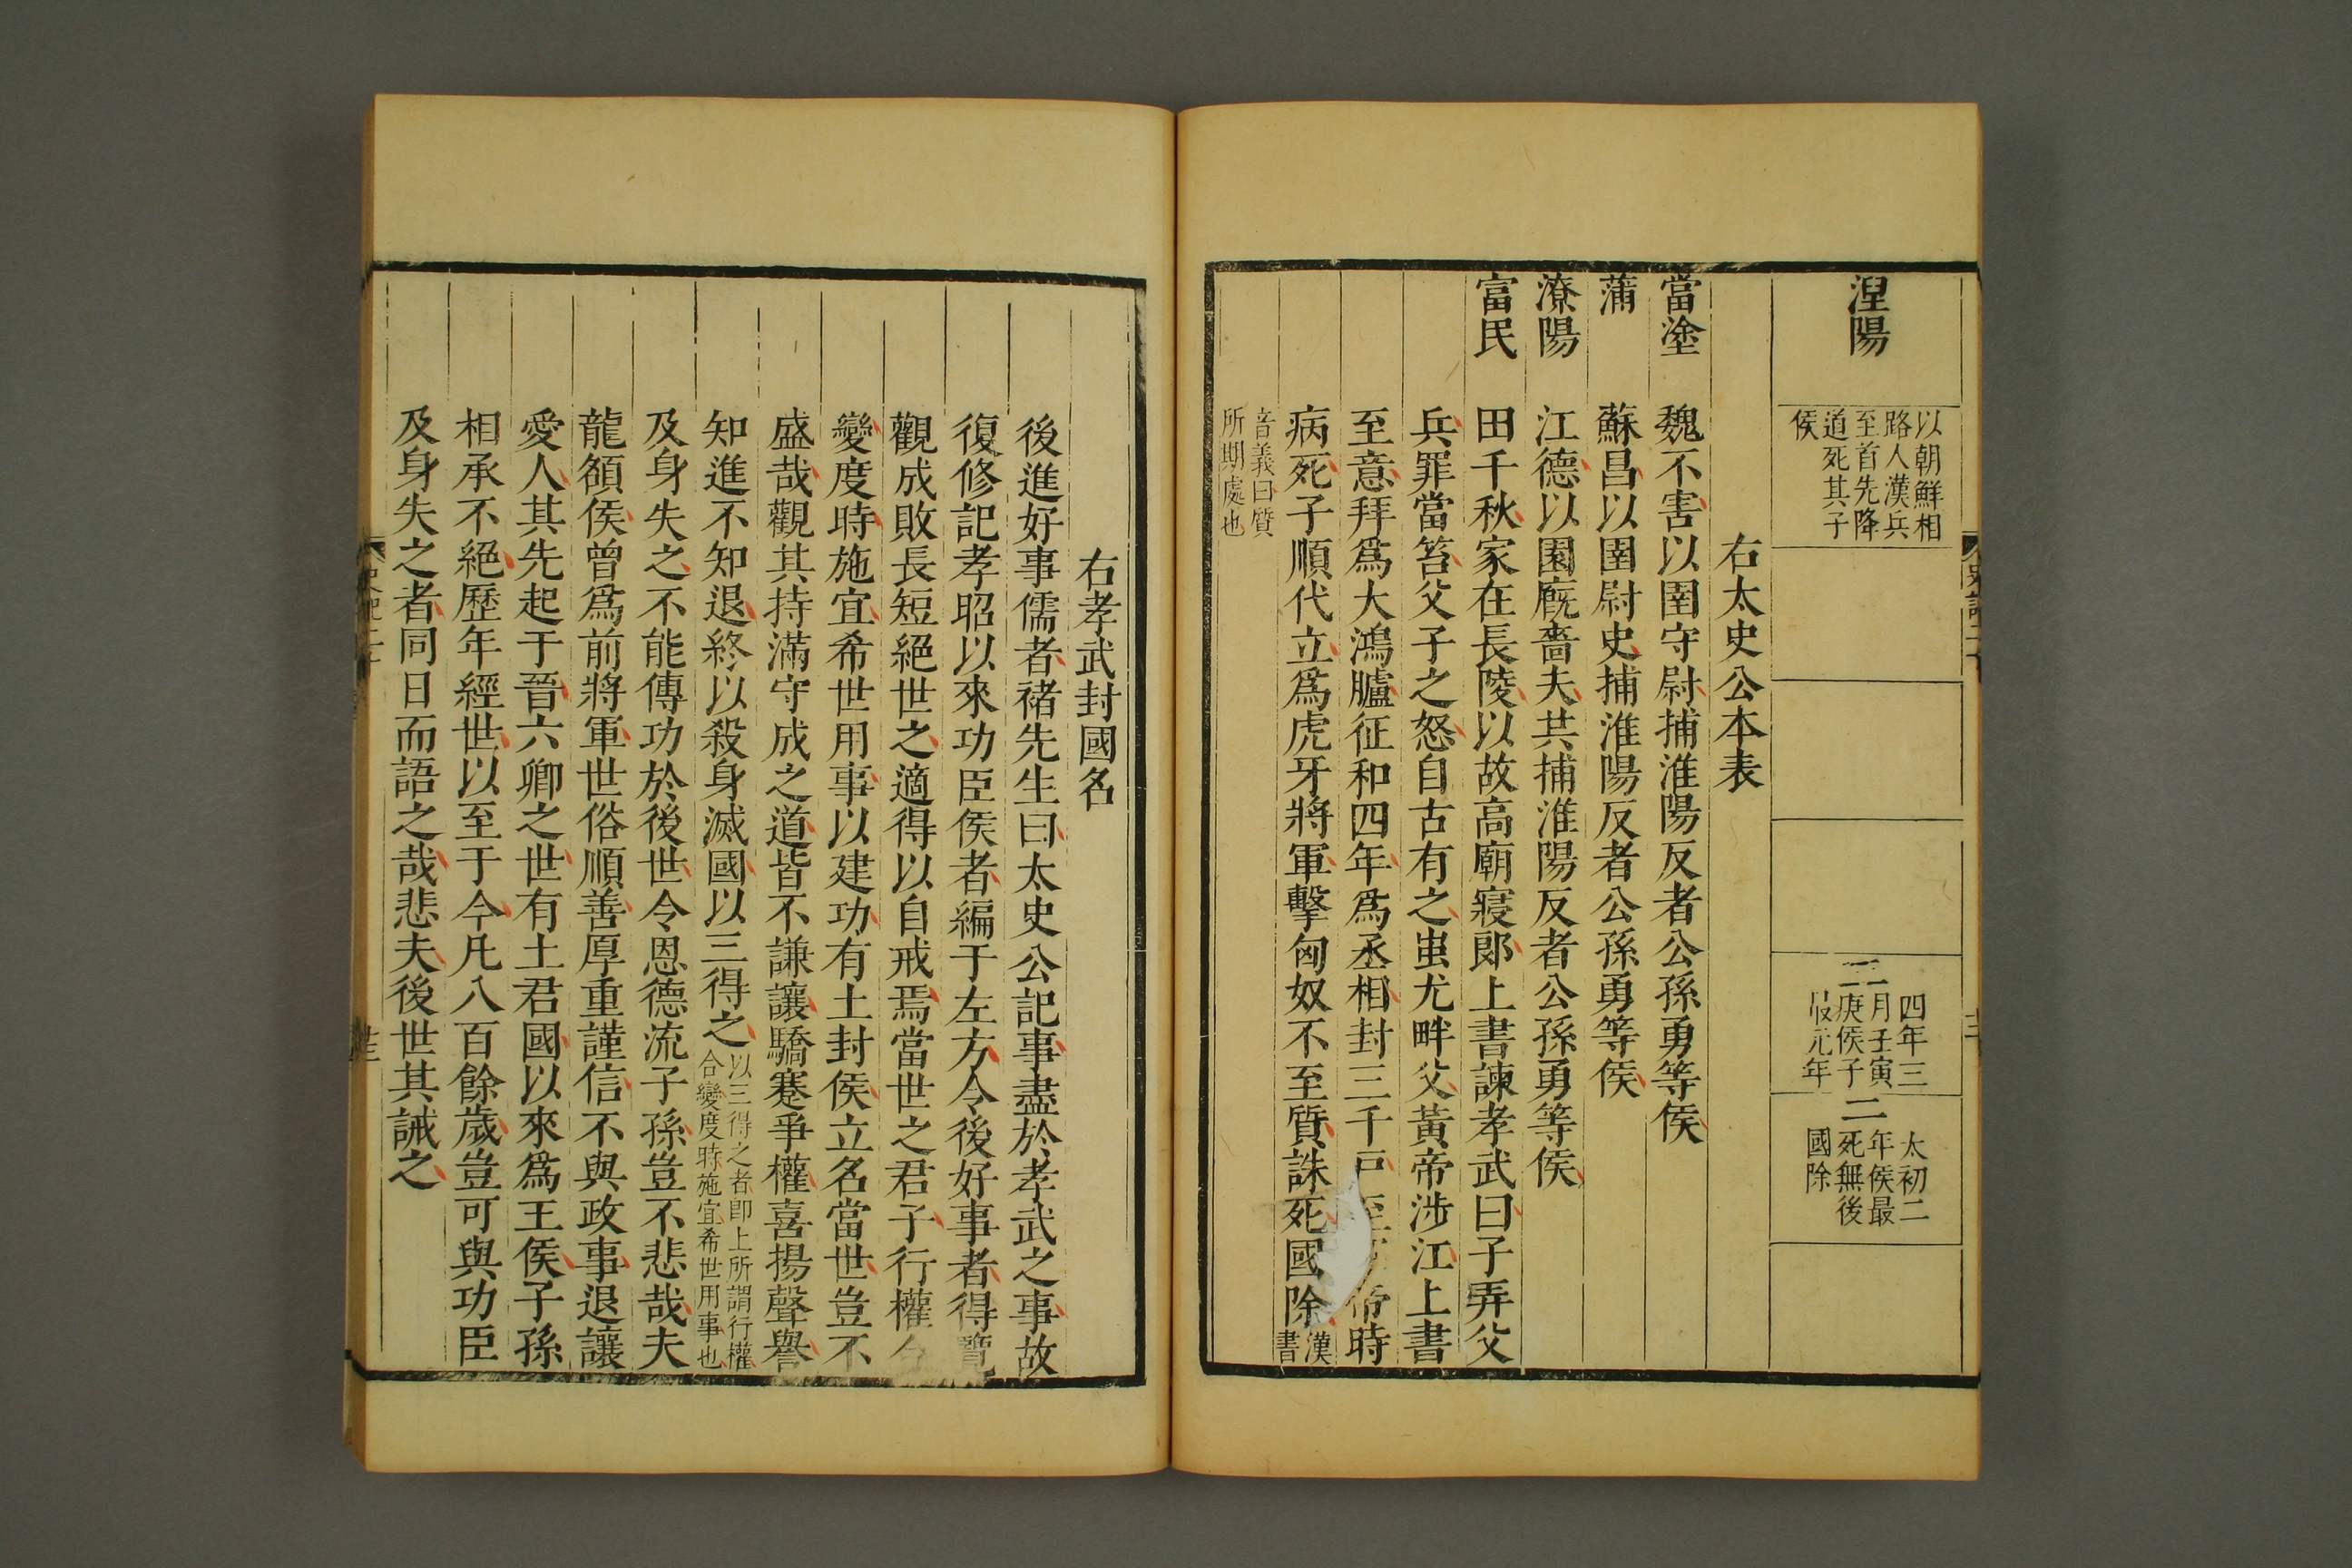 涅陽
以朝鮮相
路人漢兵
至首先降
道死其子
侯
四年三
月壬寅
庚侯子
元年
二
太初二
年侯最
死無後
國除
右太史公本表
當塗 魏不害以圉守尉捕淮陽反者公孫勇等侯
蒲 蘇昌以圉尉史捕淮陽反者公孫勇等侯
潦陽 江德以園廐嗇夫共捕淮陽反者公孫勇等侯
富民 田千秋家在長陵以故高廟寢郎上書諫孝武曰子弄父
兵罪當笞父子之怒自古有之蚩尤畔父黃帝涉江上書
至意拜爲大鴻臚征和四年爲丞相封三千戸至帝時
病死子順代立爲虎牙將軍擊匈奴不至質誅死國除漢書
音義曰質
所期處也
右孝武封國名
後進好事儒者褚先生曰太史公記事盡於孝武之事故
復修記孝昭以來功臣侯者編于左方令後好事者得覽
觀成敗長短絕世之適得以自戒焉當世之君子行權合
變度時施宜希世用事以建功有土封侯立名當世豈不
盛哉觀其持滿守成之道皆不謙讓驕蹇爭權喜揚聲譽
知進不知退終以殺身滅國以三得之以三得之者即上所謂行權
合變度時施宜希世用事也
及身失之不能傳功於後世令恩德流子孫豈不悲哉夫
龍頟侯曾爲前將軍世俗順善厚重謹信不與政事退讓
愛人其先起于晉六卿之世有土君國以來爲王侯子孫
相承不絕歷年經世以至于今凡八百餘歲豈可與功臣
及身失之者同日而語之哉悲夫後世其誡之